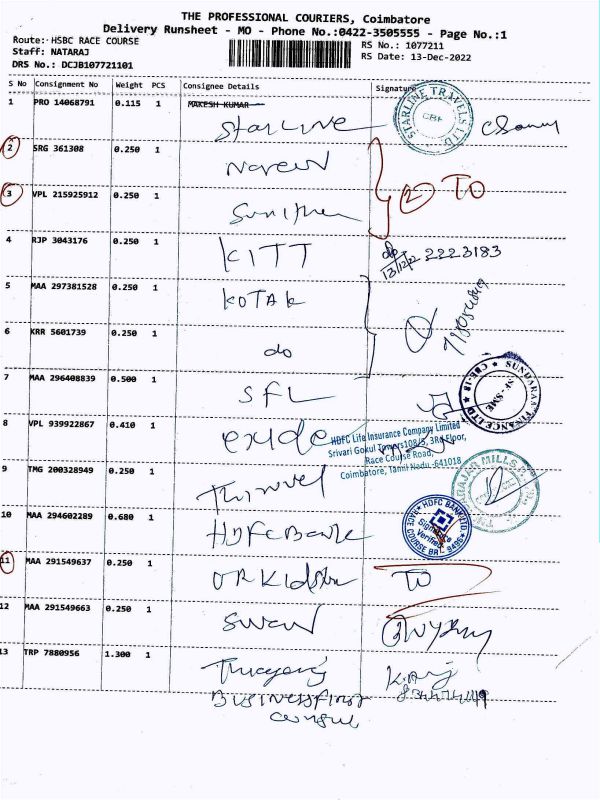 THE PROFESSIONAL COURIERS, Coimbatore
Delivery Runsheet - MO - Phone No.:0422-3505555 - Page No.:1
Route: HSBC RACE COURSE
RS No.: 1077211
Staff: NATARAJ
RS Date: 13-Dec-2022
DRS No.: DCJB107721101
S No Consignment No Weight PCS Consignee Details Signature
1 PRO 14068791 0.115 1 MAKESH KUMAR
Starline
STARLINE TRAVELS LTD
CBE
2 SRG 361308 0.250 1
Naveen
3 VPL 215925912 0.250 1
② TO
4 RJP 3043176 0.250 1 KITT
13/12/22 2223183
5 MAA 297381528 0.250 1 KOTAK
6 KRR 5601739 0.250 1
do
7 MAA 296408839 0.500 1 SFL
SUNDARAM FINANCE LTD CBE-18
SF-SME
8 VPL 939922867 0.410 1 exide
HDFC Life Insurance Company Limited
Srivari Gokul Towers108/5, 3Rd Floor,
Race Course Road,
Coimbatore, Tamil Nadu-641018
9 TMG 200328949 0.250 1
10 MAA 294602289 0.680 1
HDFC Bank
HDFC BANK LTD
Signature
Verified
RACE COURSE BR.
11 MAA 291549637 0.250 1
TO
12 MAA 291549663 0.250 1 Swan
13 TRP 7880956 1.300 1
Businessfirst